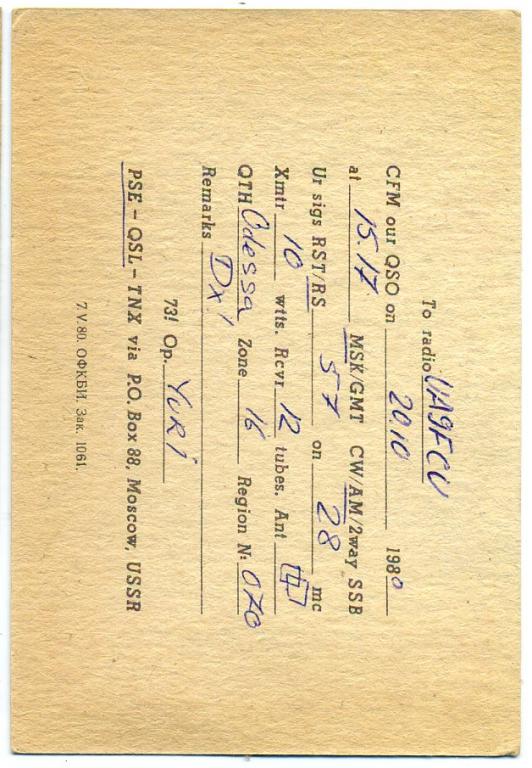 To radio UA9FCV
CFM our QSO on 20.10 1980
at 15.17 MSK/GMT CW/AM/2way SSB
Ur sigs RST/RS 57 on 28 mc
Xmtr 10 wtts. Rcvr 12 tubes. Ant
QTH Odessa Zone 16 Region N: 070
Remarks DX!
73! Op. YURI
PSE - QSL - TNX via P.O. Box 88, Moscow, USSR
7.V.80. ОФКБИ. Зак. 1061.